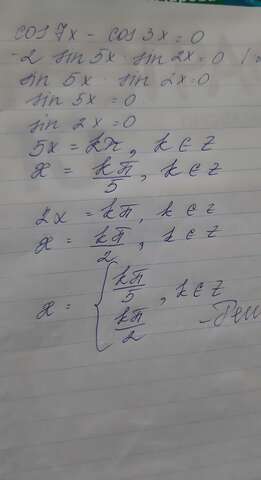 cos 7x - cos 3x = 0
-2 sin 5x · sin 2x = 0
sin 5x · sin 2x = 0
sin 5x = 0
sin 2x = 0
5x = kπ, k ∈ z
x = kπ/5, k ∈ z
2x = kπ, k ∈ z
x = kπ/2, k ∈ z
x = { kπ/5, kπ/2, k ∈ z